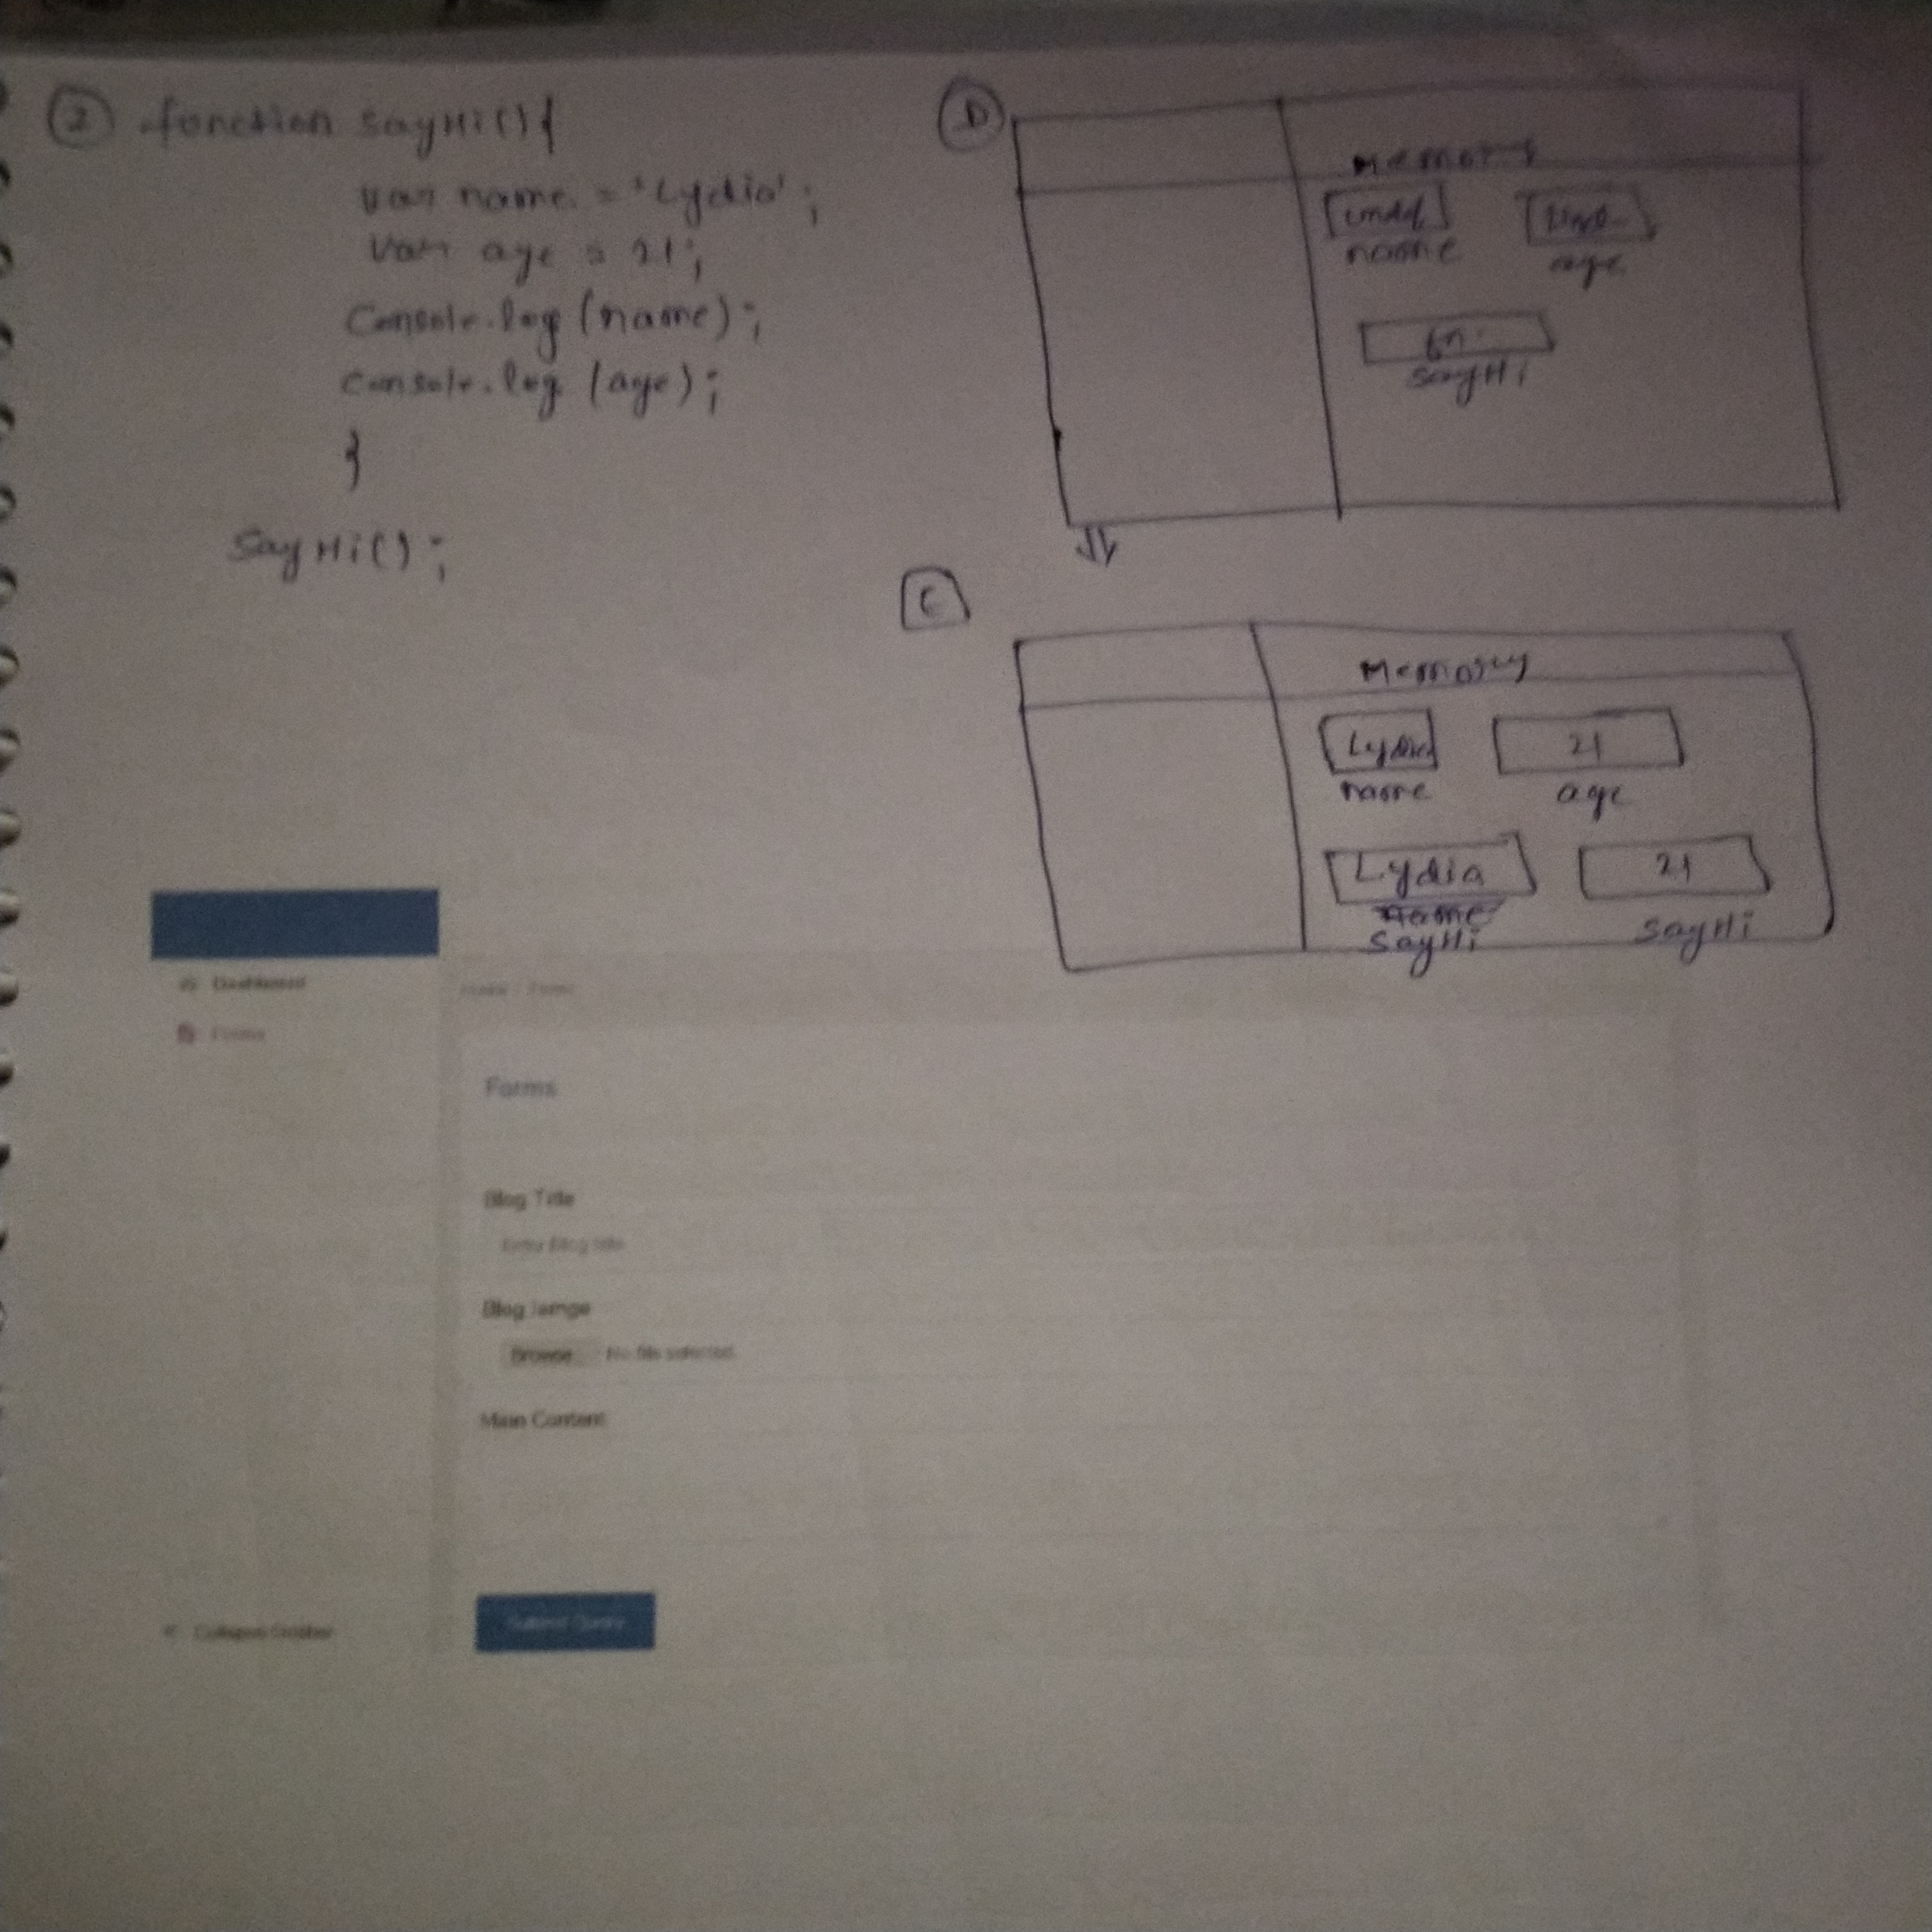 2 function sayHi(){
var name = 'Lydia';
var age = 21;
console.log (name);
console.log (age);
}
SayHi();
D
Memory
undef
name
und.
age
fn.
sayHi
C
Memory
Lydia
name
21
age
Lydia
name
sayHi
21
sayHi
Dashboard
Forms
Home / Forms
Forms
Blog Title
Enter Blog title
Blog Iamge
Browse No file selected.
Main Content
Collapse Sidebar
Submit Query